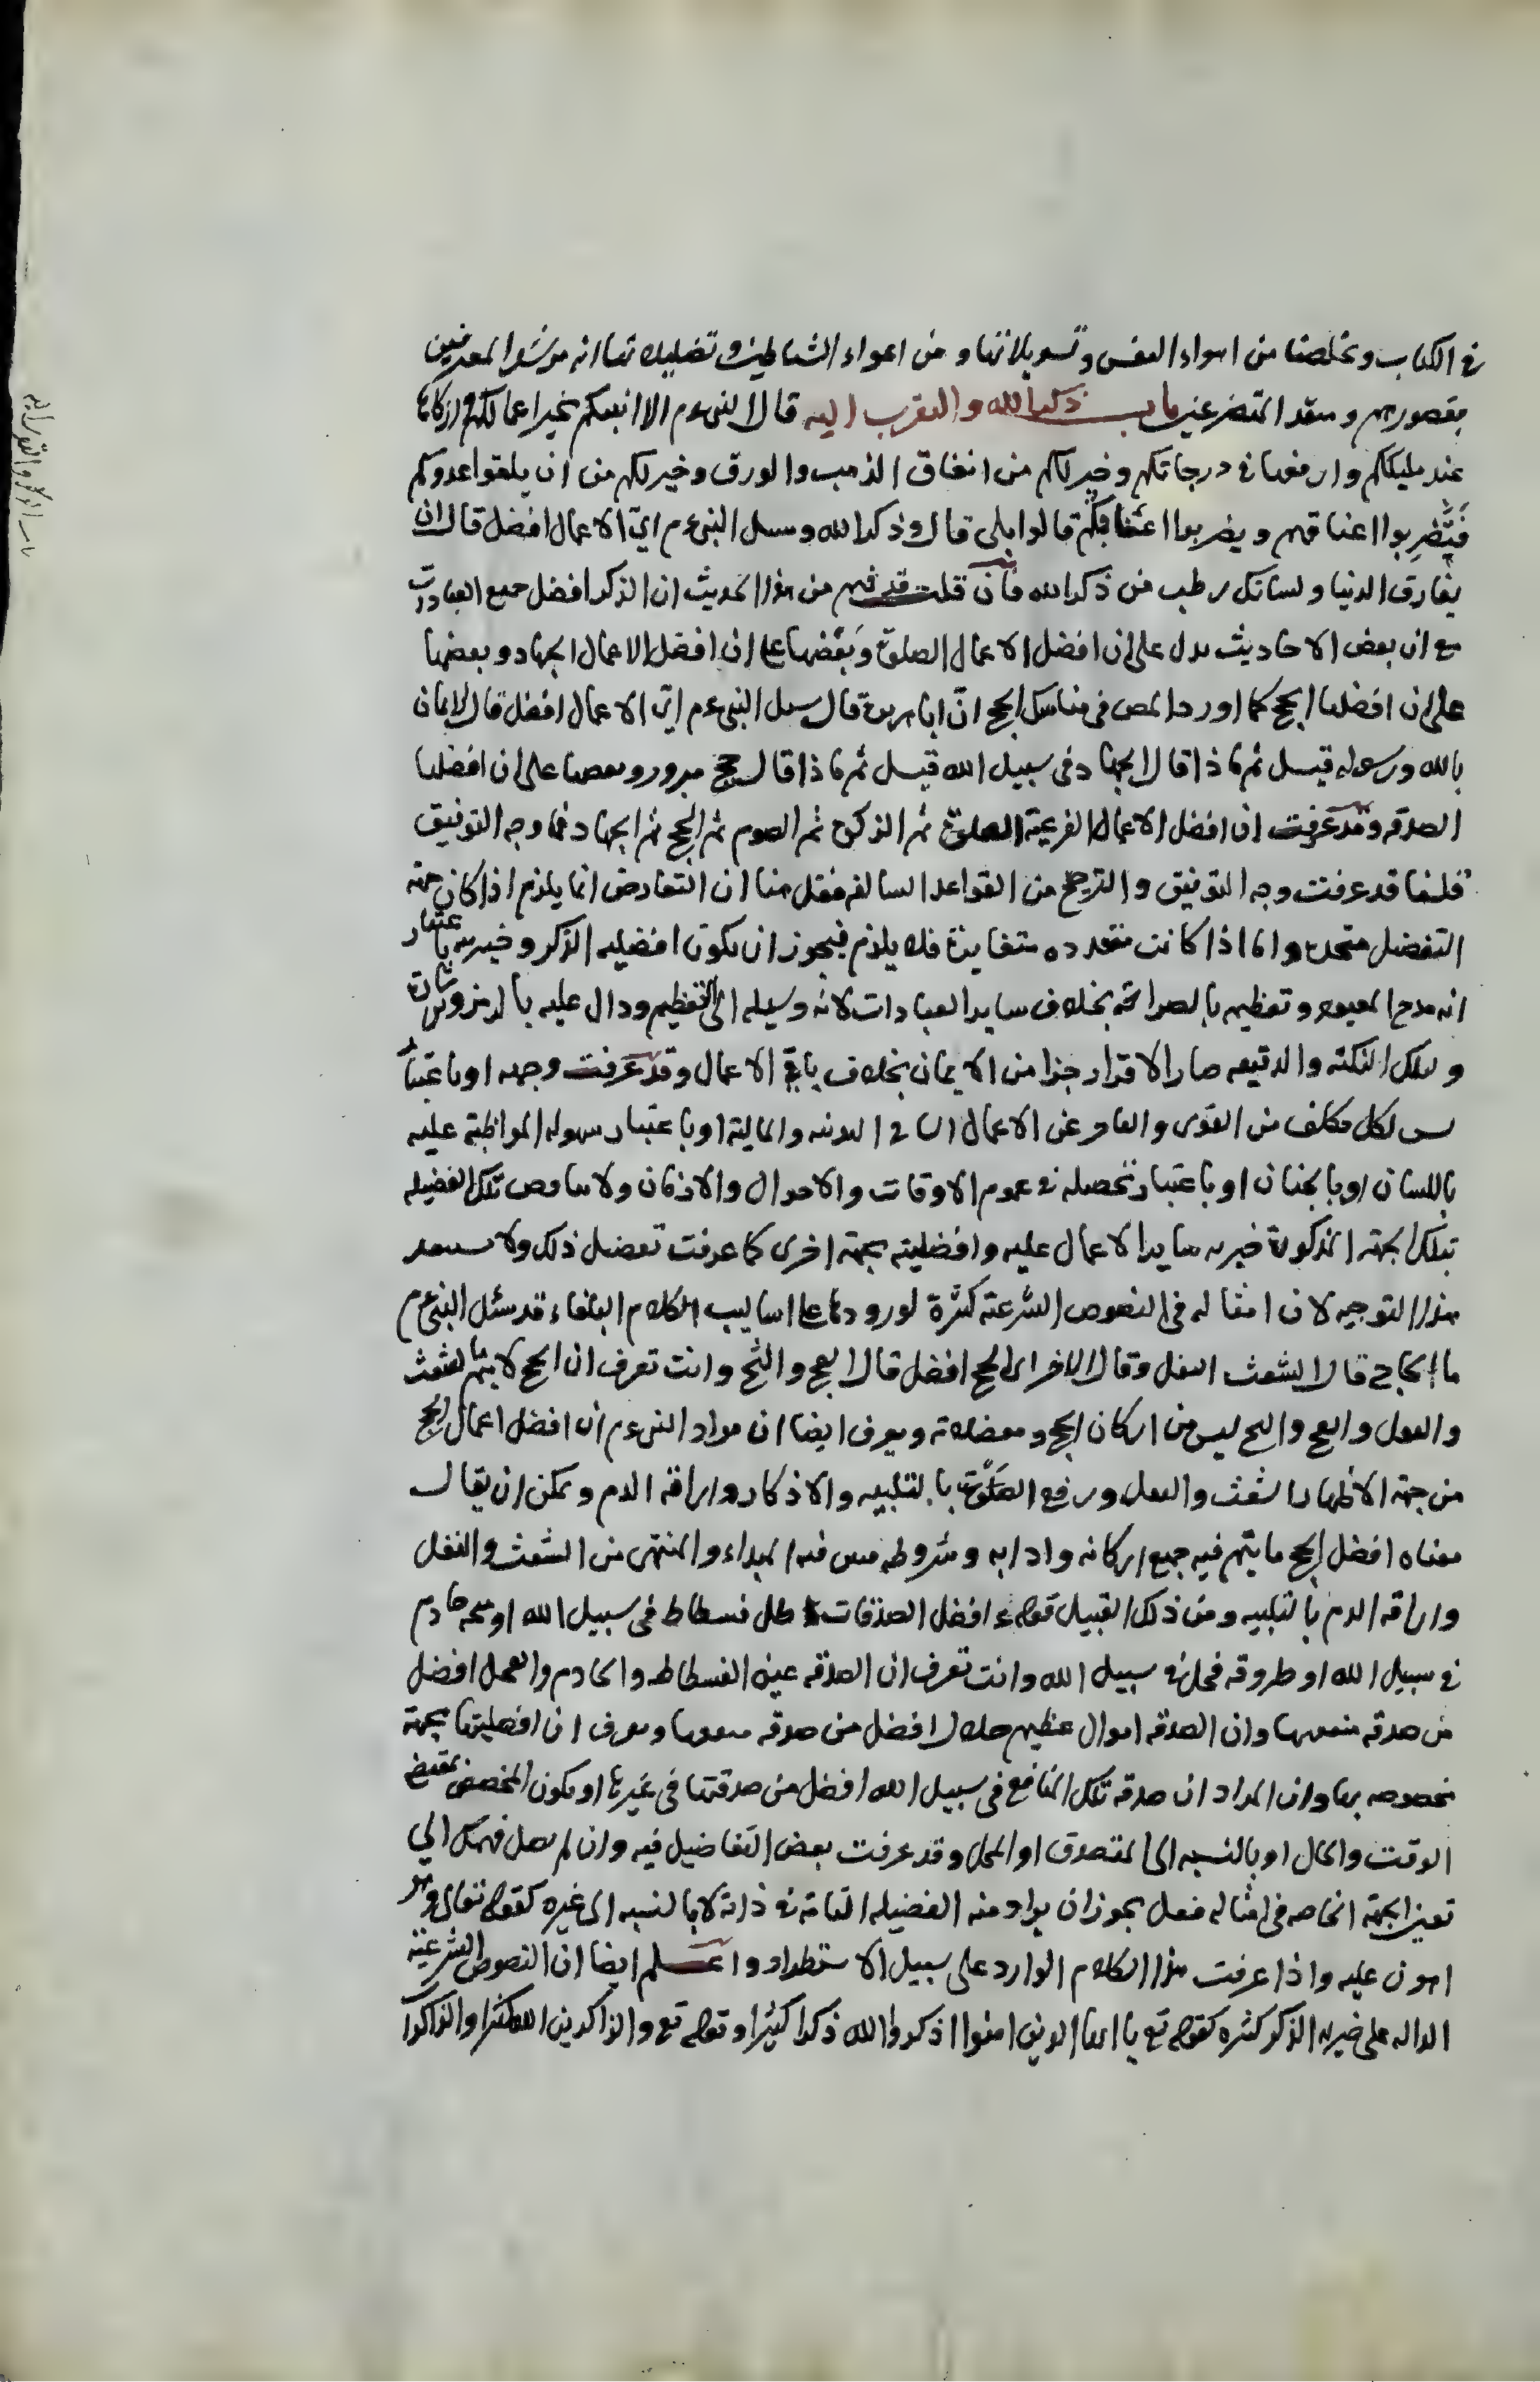 في الكتاب وتخلصنا من اهواء النفس وتسويلاتها و من اغواء الشياطين وتضليلاتها انه مرشد المعترفين
بقصورهم و منقذ المتضرعين باب ذكر الله والتقرب اليه قال النبي عم الا انبئكم بخير اعمالكم وازكاها
عند مليككم وارفعها في درجاتكم وخير لكم من انفاق الذهب والورق وخير لكم من ان يلقوا عدوكم
فتضربوا اعناقهم ويضربوا اعناقكم قالوا بلى قال ذكر الله وسئل النبي عم اي الاعمال افضل قال ان
يفارق الدنيا ولسانك رطب من ذكر الله فان قلت قد فهم من هذا الحديث ان الذكر افضل جميع العبادات
مع ان بعض الاحاديث يدل على ان افضل الاعمال الصلوة وبعضها على ان افضل الاعمال الجهاد وبعضها
على ان افضلها الحج كما اورد المص في مناسك الحج ان ابا هريرة قال سئل النبي عم اي الاعمال افضل قال الايمان
بالله ورسوله قيل ثم ماذا قال الجهاد في سبيل الله قيل ثم ماذا قال حج مبرور وبعضها على ان افضلها
الصدقه وقد عرفت ان افضل الاعمال الفرعية الصلوة ثم الزكوة ثم الصوم ثم الحج ثم الجهاد فما وجه التوفيق
قلنا قد عرفت وجه التوفيق والترجيح من القواعد السالفه فنقل هنا ان التعارض انما يلزم اذا كان جهة
التفضيل متحدة واما اذا كانت متعدده متغايرة فلا يلزم فيجوز ان يكون افضليه الذكر وخيريته باعتبار
انه مدح المعبود وتعظيمه بالصراحة بخلاف ساير العبادات لانه وسيله الى التعظيم ودال عليه بالرمز والاشارة
و لتلك النكته والدقيقه صار الاقرار جزا من الايمان بخلاف باقي الاعمال وقد عرفت وجهه او باعتبار
لكل مكلف من القوى والعاجز عن الاعمال الباقي البدنيه والمالية او باعتبار سهوله المواظبة عليه
باللسان او بالجنان او باعتبار تحصله في عموم الاوقات والاحوال والازمان ولا يناقض تلك الفضيله
بتلك الجهة المذكورة خيريه ساير الاعمال عليه وافضليته بجهة اخرى كما عرفت تفصيل ذلك ولا يستبعد
هذا التوجيه لان امثاله في النصوص الشرعية كثيرة لورودها على اساليب الكلام البلغاء قد سئل النبي عم
ما الحاج قال الشعث التفل وقال الاخر اي الحج افضل قال العج والثج وانت تعرف ان الحج لا يتم بالشعث
والتفل والعج والثج ليس من اركان الحج و مفضلاته ويعرف ايضا ان مراد النبي عم ان افضل اعمال الحج
من جهة الاظهار الشعث والتفل ورفع الصوت بالتلبيه والاذكار واراقة الدم ويمكن ان يقال
معناه افضل الحج ما يتم فيه جميع اركانه وادابه وشروطه فبين فيه المبداء والمنتهى من الشعث والتفل
واراقه الدم بالتلبيه ومن ذلك القبيل قوله ع افضل الصدقات ظل فسطاط في سبيل الله او منحه خادم
في سبيل الله او طروقه فحل في سبيل الله وانت تعرف ان الصدقه عين الفسطاط والخادم والفحل افضل
من صدقه منفعتها وان الصدقه اموال عظيم حلال افضل من صدقه منفعتها ويعرف ان افضليتها بجهة
مخصوصه بها وان المراد ان صدقه تلك المنافع في سبيل الله افضل من صدقتها في غيرها او يكون المخصص بمقتضى
الوقت والحال او بالنسبه الى المتصدق او المحل وقد عرفت بعض التفاضيل فيه وان لم يصل فهمك الى
تعين الجهة الخاصه في امثاله فقل يجوز ان يراد منه الفضيله التامة في ذاته لا بالنسبه الى غيره كقوله تعالى وهو
اهون عليه واذا عرفت هذا الكلام الوارد على سبيل الاستطراد واعلم ايضا ان النصوص الشرعية
الداله على خيريه الذكر كثيره كقوله تع يا ايها الذين امنوا اذكروا الله ذكرا كثيرا وقوله تع والذاكرين الله كثيرا والذاكرات